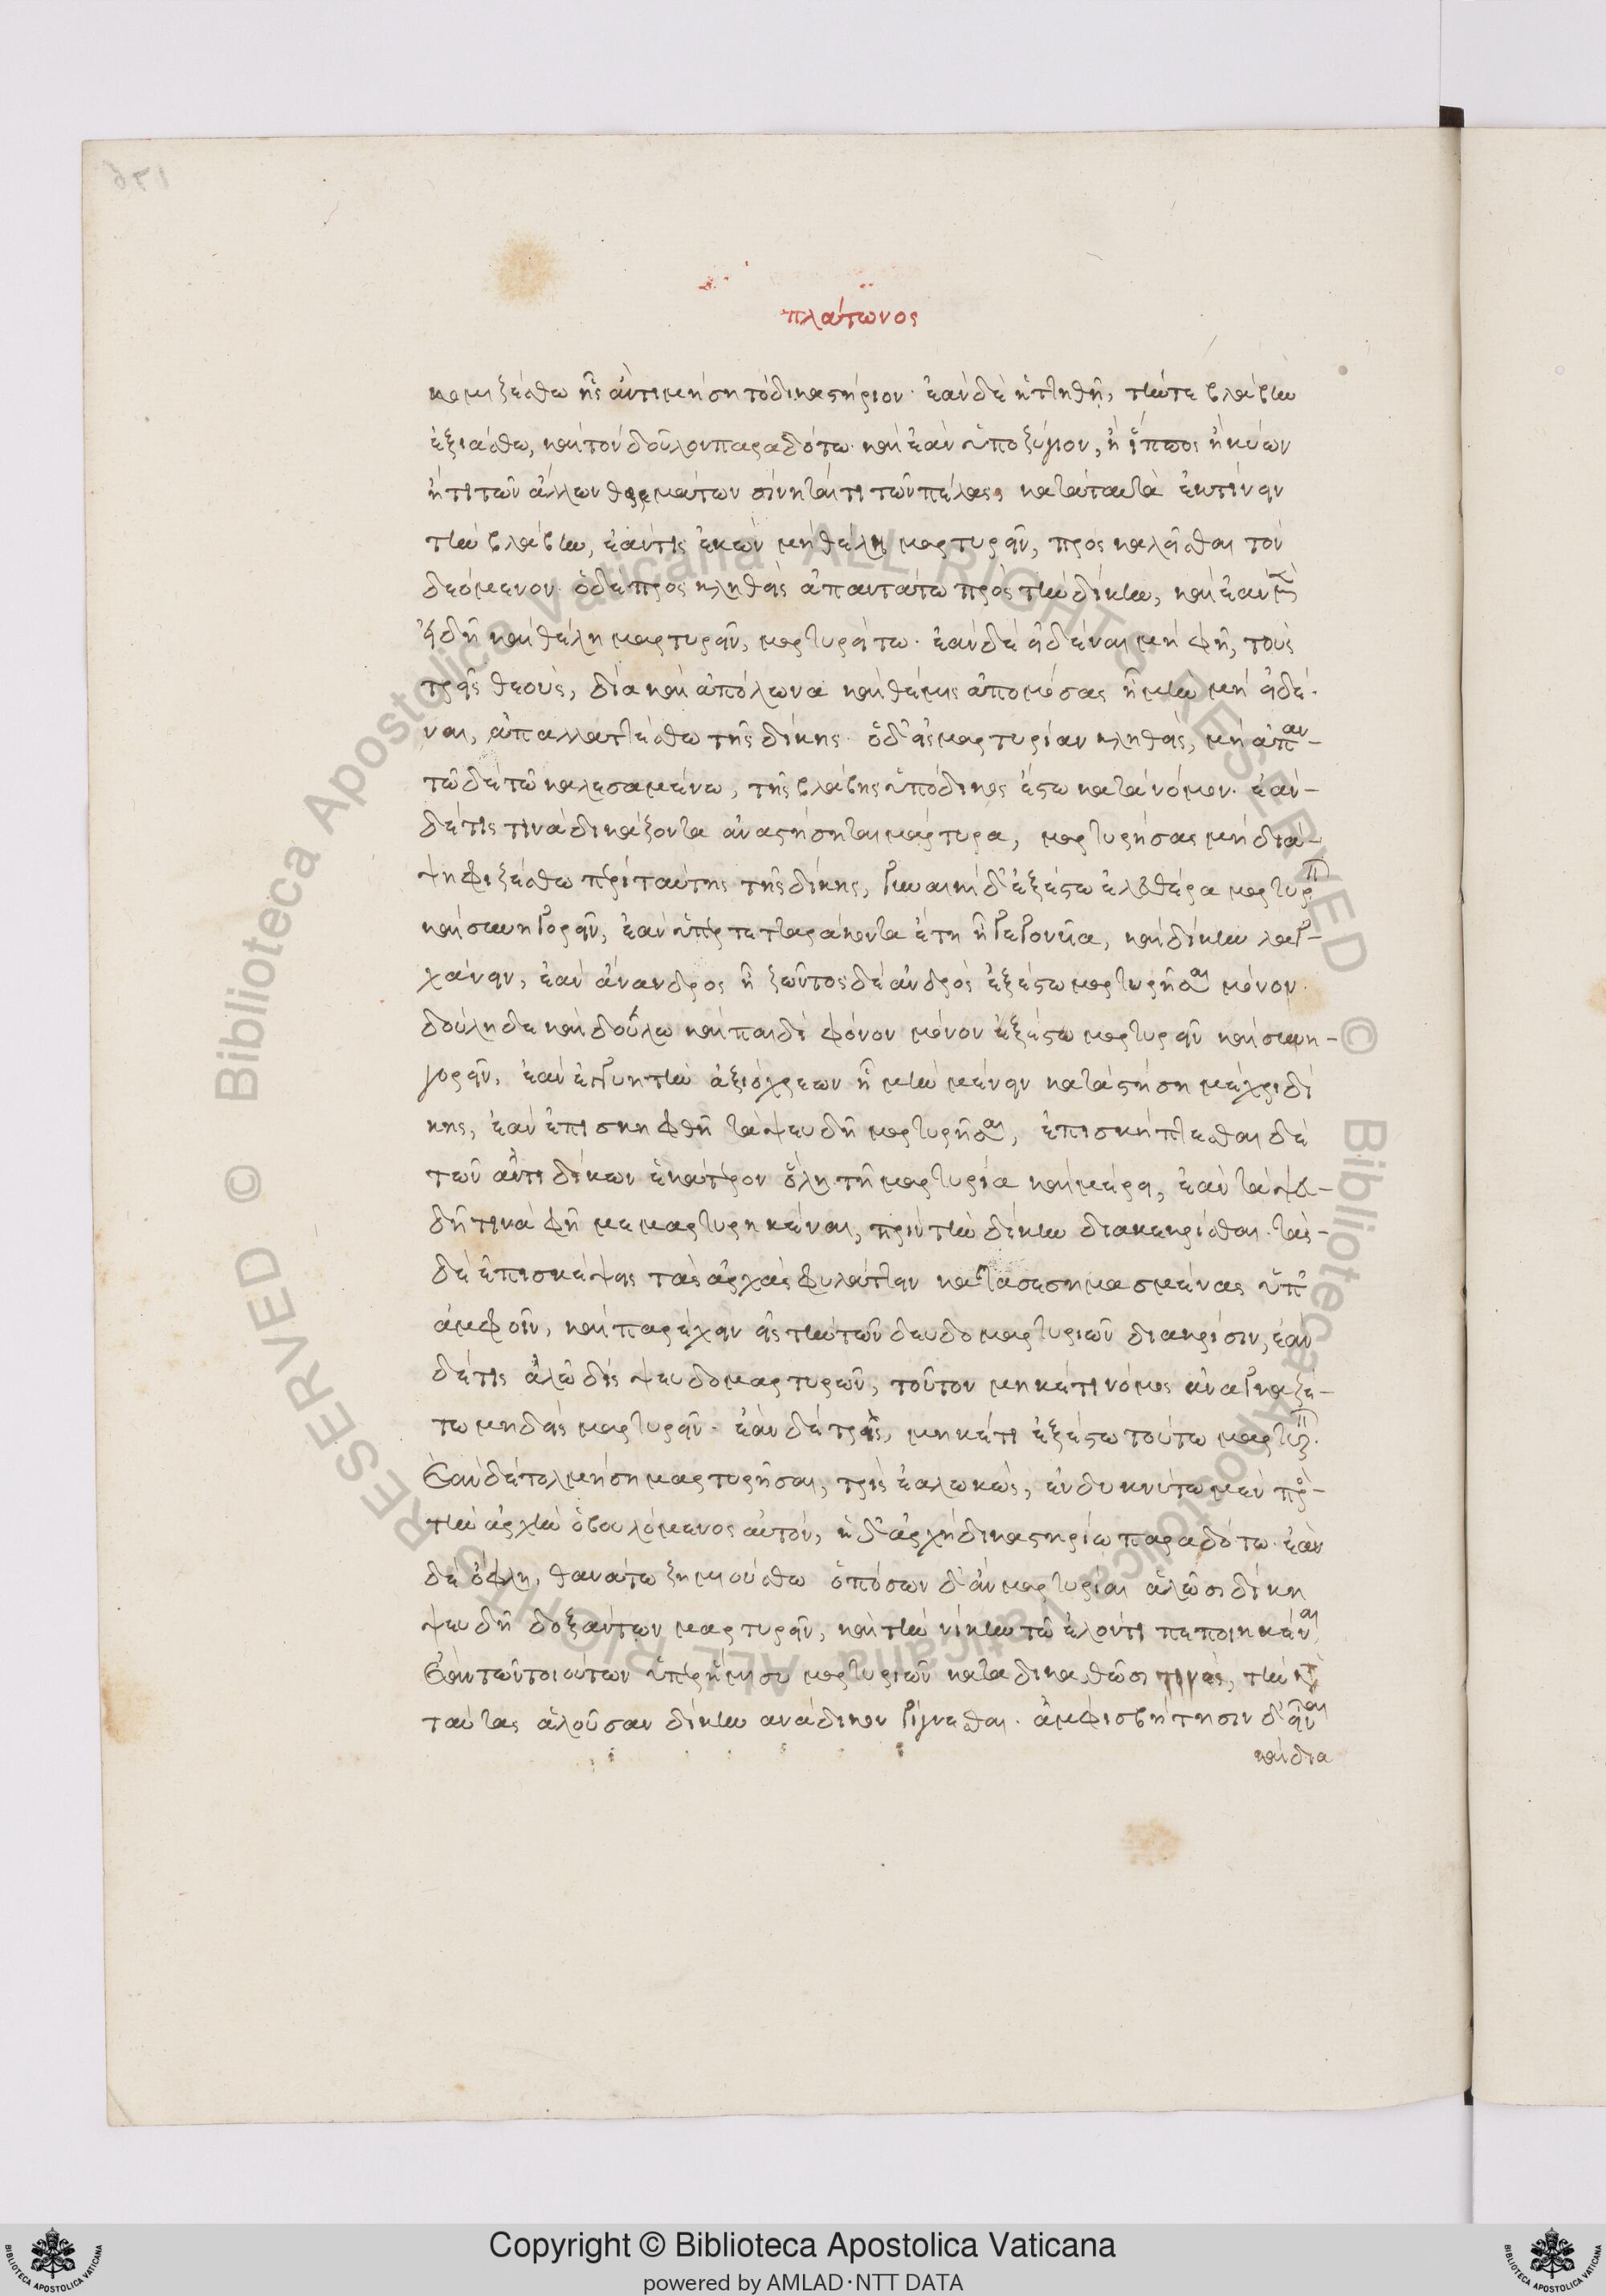 πλάτωνος
κομιζέσθω ἧς ἀντιμήση τὸ δικαστήριον· ἐὰν δὲ ἡττηθῆ, τήν τε βλάβην
ἐξιάσθω, καὶ τὸν δοῦλον παραδότω· καὶ ἐὰν ὑποζύγιον, ἢ ἵππος ἢ κύων
ἤ τι τῶν ἄλλων θρεμμάτων σίνηταί τι τῶν πέλας, κατὰ ταυτὰ ἐκτίνειν
τὴν βλάβην, ἐάν τις ἑκὼν μὴ θέλη μαρτυρεῖν, προσκαλεῖσθαι τὸν
δεόμενον· ὁ δὲ προσκληθεὶς ἀπαντάτω πρὸς τὴν δίκην, καὶ ἐὰν μὲν
εἰδῆ καὶ θέλη μαρτυρεῖν, μαρτυρείτω· ἐὰν δὲ εἰδέναι μὴ φῆ, τοὺς
τρεῖς θεοὺς, δία καὶ ἀπόλωνα καὶ θέμις ἀπομόσας ἦ μὴν μὴ εἰδέ-
ναι, ἀπαλλαττέσθω τῆς δίκης· ὁ δ' εἰς μαρτυρίαν κληθεὶς, μὴ ἀπαν-
τῶ δὲ τῶ καλεσαμένω, τῆς βλάβης ὑπόδικος ἔστω κατὰ νόμον· ἐὰν-
δέ τίς τινα δικάζοντα ἀναστήσηται μάρτυρα, μαρτυρήσας μὴ δια-
ψηφιζέσθω περὶ ταύτης τῆς δίκης, γυναικὶ δ' ἐξέστω ἐλευθέρα μαρτυρεῖν
καὶ συνηγορεῖν, ἐὰν ὑπὲρ τετταράκοντα ἔτη ἦ γεγονυῖα, καὶ δίκην λαγ-
χάνειν, ἐὰν ἄνανδρος ἦ ζῶντος δὲ ἀνδρὸς ἐξέστω μαρτυρῆσαι μόνον·
δούλη δε καὶ δούλω καὶ παιδὶ φόνον μόνον ἐξέστω μαρτυρεῖν καὶ συνη-
γορεῖν, ἐὰν ἐγγυητὴν ἀξιόχρεων ἦ μὴν μένειν καταστήση μέχρι δί
κης, ἐὰν ἐπισκηφθῆ τὰ ψευδῆ μαρτυρῆσαι, ἐπισκήπτεσθαι δὲ
τῶν ἀντιδίκων ἑκάτερον ὅλη τῆ μαρτυρία καὶ μέρει, ἐὰν τὰ ψευ-
δῆ τινὰ φῆ μεμαρτυρηκέναι, πρὶν τὴν δίκην διακεκρίσθαι· τὰς-
δὲ ἐπισκέψεις τὰς ἀρχὰς φυλάττειν κατασεσημασμένας ὑπ'
ἀμφοῖν, καὶ παρέχειν εἰς τὴν τῶν ψευδομαρτυριῶν διακρίσιν, ἐὰν
δέ τις ἁλῶ δὶς ψευδομαρτυρῶν, τοῦτον μηκέτι νόμος ἀναγκαζέ-
τω μηδεὶς μαρτυρεῖν· ἐὰν δὲ τρεῖς, μηκέτι ἐξέστω τούτω μαρτυρεῖν.
Ἐὰν δὲ τολμήση μαρτυρῆσαι, τρὶς ἑαλωκὼς, ἐνδυκνύτω μὲν πρὸ-
τὴν ἀρχὴν ὁ βουλόμενος αὐτόν, ἡ δ' ἀρχὴ δικαστηρίω παραδότω· ἐὰν
δὲ ὄφλη, θανάτω ζημιούσθω ὁπόσων δ' ἂν μαρτυρίαι ἁλῶσι δίκη
ψευδῆ δοξάντων μαρτυρεῖν, καὶ τὴν νίκην τῶ ἑλόντι πεποιηκέναι,
Ἐὰν τῶν τοιούτων ὑπὲρ ἥμισυ μαρτυριῶν καταδικασθῶσί τινες, τὴν κατὰ
ταύτας ἁλοῦσαν δίκην ἀνάδικον γίγνεσθαι· ἀμφισβήτησιν δ' εἶναι
καὶ δια
Copyright © Biblioteca Apostolica Vaticana
powered by AMLAD·NTT DATA